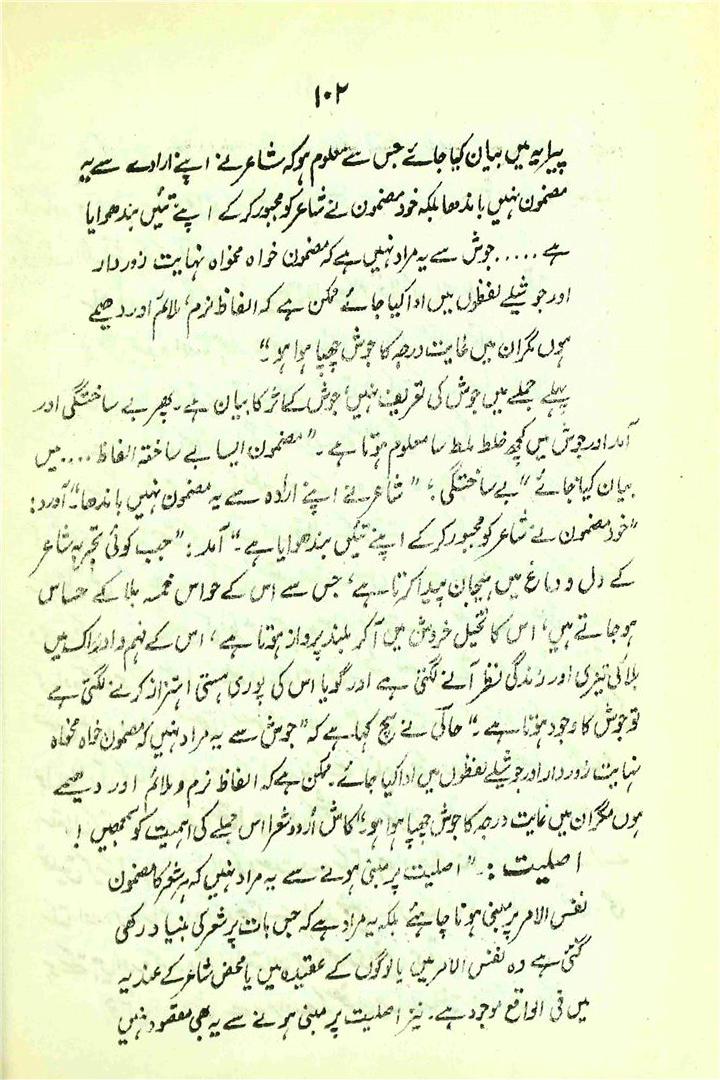 ۱۰۲
پیرایہ میں بیان کیا جائے جس سے معلوم ہو کہ شاعر نے اپنے ارادے سے یہ
مضمون نہیں باندھا بلکہ خود مضمون نے شاعر کو مجبور کرکے اپنے تئیں بندھوایا
ہے ..... جوش سے یہ مراد نہیں ہے کہ مضمون خواہ مخواہ نہایت زوردار
اور جوشیلے لفظوں میں ادا کیا جائے ممکن ہے کہ الفاظ نرم، ملائم اور دھیمے
ہوں مگر ان میں غایت درجہ کا جوش چھپا ہوا ہو۔"
پہلے جملے میں جوش کی تعریف نہیں، جوش کے اثر کا بیان ہے۔ پھر بے ساختگی اور
آمد اور جوش میں کچھ خلط ملط سا معلوم ہوتا ہے۔ "مضمون ایسا بے ساختہ الفاظ .... میں
بیان کیا جائے" بے ساختگی؛ "شاعر نے اپنے ارادہ سے یہ مضمون نہیں باندھا"۔ آورد:
"خود مضمون نے شاعر کو مجبور کرکے اپنے تئیں بندھوایا ہے۔" آمد: "جب کوئی تجربہ شاعر
کے دل و دماغ میں ہیجان پیدا کرتا ہے، جس سے اس کے حواس خمسہ بلا کے حساس
ہو جاتے ہیں، اس کا تخیل خروش میں آ کر بلند پرواز ہوتا ہے، اس کے فہم و ادراک میں
بلا کی تیزی اور زندگی نظر آنے لگتی ہے اور گویا اس کی پوری ہستی اہتزاز کرنے لگتی ہے
تو جوش کا وجود ہوتا ہے۔" حالی نے سچ کہا ہے کہ "جوش سے یہ مراد نہیں کہ مضمون خواہ مخواہ
نہایت زوردار اور جوشیلے لفظوں میں ادا کیا جائے۔ ممکن ہے کہ الفاظ نرم و ملائم اور دھیمے
ہوں مگر ان میں غایت درجہ کا جوش چھپا ہوا ہو۔" کاش اُردو شعرا اس جملے کی اہمیت کو سمجھیں!
اصلیت :۔ "اصلیت پر مبنی ہونے سے یہ مراد نہیں کہ ہر شعر کا مضمون
نفس الامر پر مبنی ہونا چاہئے بلکہ یہ مراد ہے کہ جس بات پر شعر کی بنیاد رکھی
گئی ہے وہ نفس الامر میں یا لوگوں کے عقیدہ میں یا محض شاعر کے عندیہ
میں فی الواقع موجود ہے۔ نیز اصلیت پر مبنی ہونے سے یہ بھی مقصود نہیں